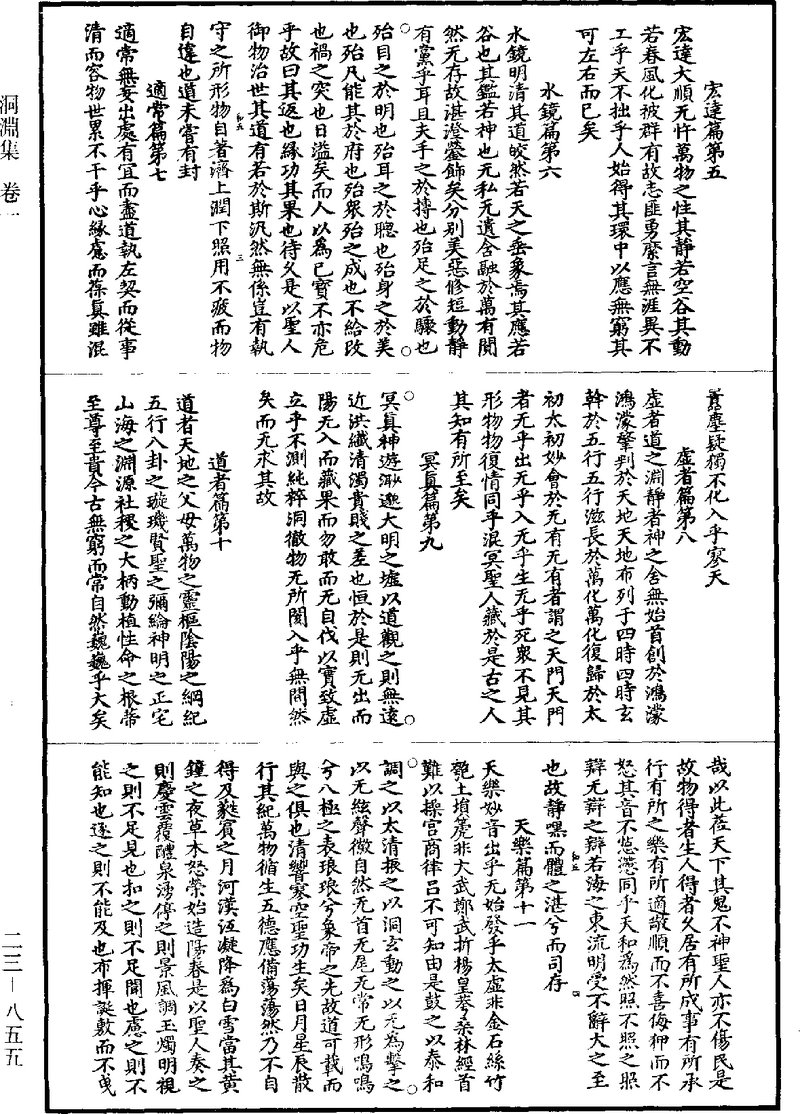 宏達篇第五
宏達大順无忤萬物之性其靜若空谷其動
若春風化被群有故志匪勇縻言無涯異不
工乎天不拙乎人始得其環中以應無窮其
可左右而已矣
水鏡篇第六
水鏡明清其道皎然若天之垂象焉其應若
谷也其鑑若神也无私无遺含融於萬有閴
然无存故湛澄鎣飾矣分別美惡修短動靜
有黨乎耳且夫手之於摶也殆足之於驟也
殆目之於明也殆耳之於聰也殆身之於美
也殆凡能其於府也殆眾殆之成也不給改
也禍之突也日溢矣而人以為己寶不亦危
乎故曰其返也緣功其果也待久是以聖人
御物治世其道有若於斯汎然無係豈有執
守之所形物自著濟上潤下照用不疲而物
自違也道未嘗有封
適常篇第七
適常無妄出處有宜而盡道執左契而從事
清而容物世累不干乎心緣慮而葆真雖混
囂塵疑獨不化入乎寥天
虛者篇第八
虛者道之淵靜者神之舍無始首創於鴻濛
鴻濛肇判於天地天地布列于四時四時玄
幹於五行五行滋長於萬化萬化復歸於太
初太初妙會於无有无有者謂之天門天門
者无乎出无乎入无乎生无乎死眾不見其
形物物復情同乎混冥聖人藏於是古之人
其知有所至矣
冥真篇第九
冥真神遊渺邈大明之墟以道觀之則無遠
近洪纖清濁貴賤之差也恒於是則无出而
陽无入而藏果而勿敢而无自伐以實致虛
立乎不測純粹洞徹物无所閡入乎無間然
矣而无求其故
道者篇第十
道者天地之父母萬物之靈樞陰陽之綱紀
五行八卦之璇璣賢聖之彌綸神明之正宅
山海之淵源社稷之大柄動植性命之根蒂
至尊至貴今古無窮而常自然巍巍乎大矣
哉以此莅天下其鬼不神聖人亦不傷民是
故物得者生人得者久居有所成事有所承
行有所之樂有所適敬順而不喜侮狎而不
怒其音不怸懘同乎天和為然照不照之照
辯无辯之辯若海之東流明受不辭大之至
也故靜嘿而體之湛兮而司存
天樂篇第十一
天樂妙音出乎无始發乎太虛非金石絲竹
匏土塤篪非大武鄭武折楊皇荂桑林經首
難以操宮商律呂不可知由是鼓之以泰和
調之以太清振之以洞玄動之以无為擊之
以无絃聲微自然无首无尾无常无形鳴鳴
兮八極之表琅琅兮象帝之先故道可載而
與之俱也清響寥空聖功生矣日月星辰散
行其紀萬物循生五德應備蕩蕩然乃不自
得及蕤賓之月河漢沍凝降為白雪當其黃
鐘之夜草木怒榮始造陽春是以聖人奏之
則慶雲覆醴泉湧停之則景風調玉燭明視
之則不足見也扣之則不足聞也慮之則不
能知也逐之則不能及也布揮誕敷而不曳
洞淵集 卷一
二三－八五五